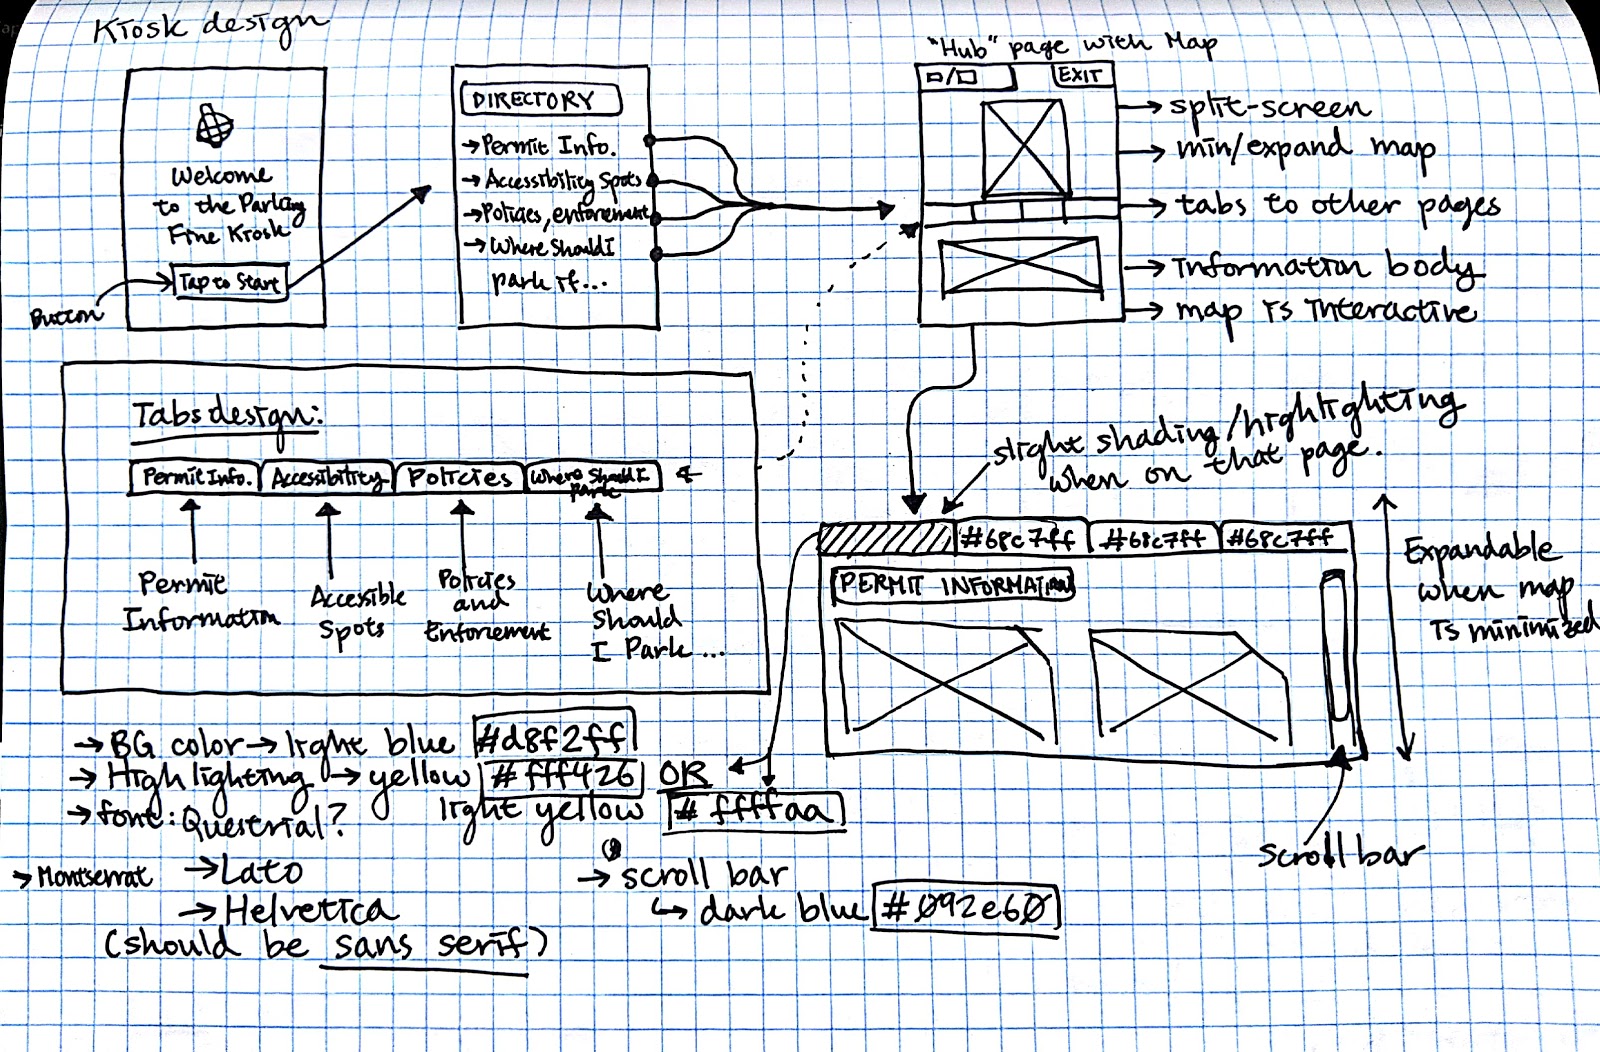 Kiosk design
Welcome
to the Parking
Fine Kiosk
Tap to Start
Button
DIRECTORY
→ Permit Info.
→ Accessibility Spots
→ Policies, enforcement
→ Where Should I
park if...
"Hub" page with Map
EXIT
→ split-screen
→ min/expand map
→ tabs to other pages
→ Information body
→ map is interactive
Tabs design:
Permit Info. Accessibility Policies Where Should I
Park
Permit
Information
Accessible
Spots
Policies
and
Enforcement
Where
Should
I Park ...
slight shading/highlighting
when on that page.
#68c7ff #68c7ff #68c7ff
PERMIT INFORMATION
Expandable
when map
is minimized
scroll bar
→ BG color → light blue #d8f2ff
→ Highlighting → yellow #fff426 OR
light yellow #ffffaa
→ font: Questrial?
→ Montserrat → Lato
→ Helvetica
(should be sans serif)
→ scroll bar
↳ dark blue #092e60